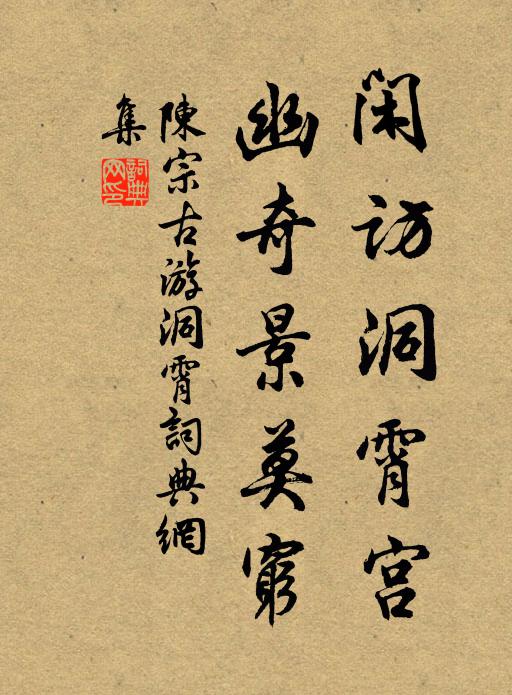 闲访洞霄宫
幽奇景莫穷
陳宗古游洞霄詞典網
集
詞典網印